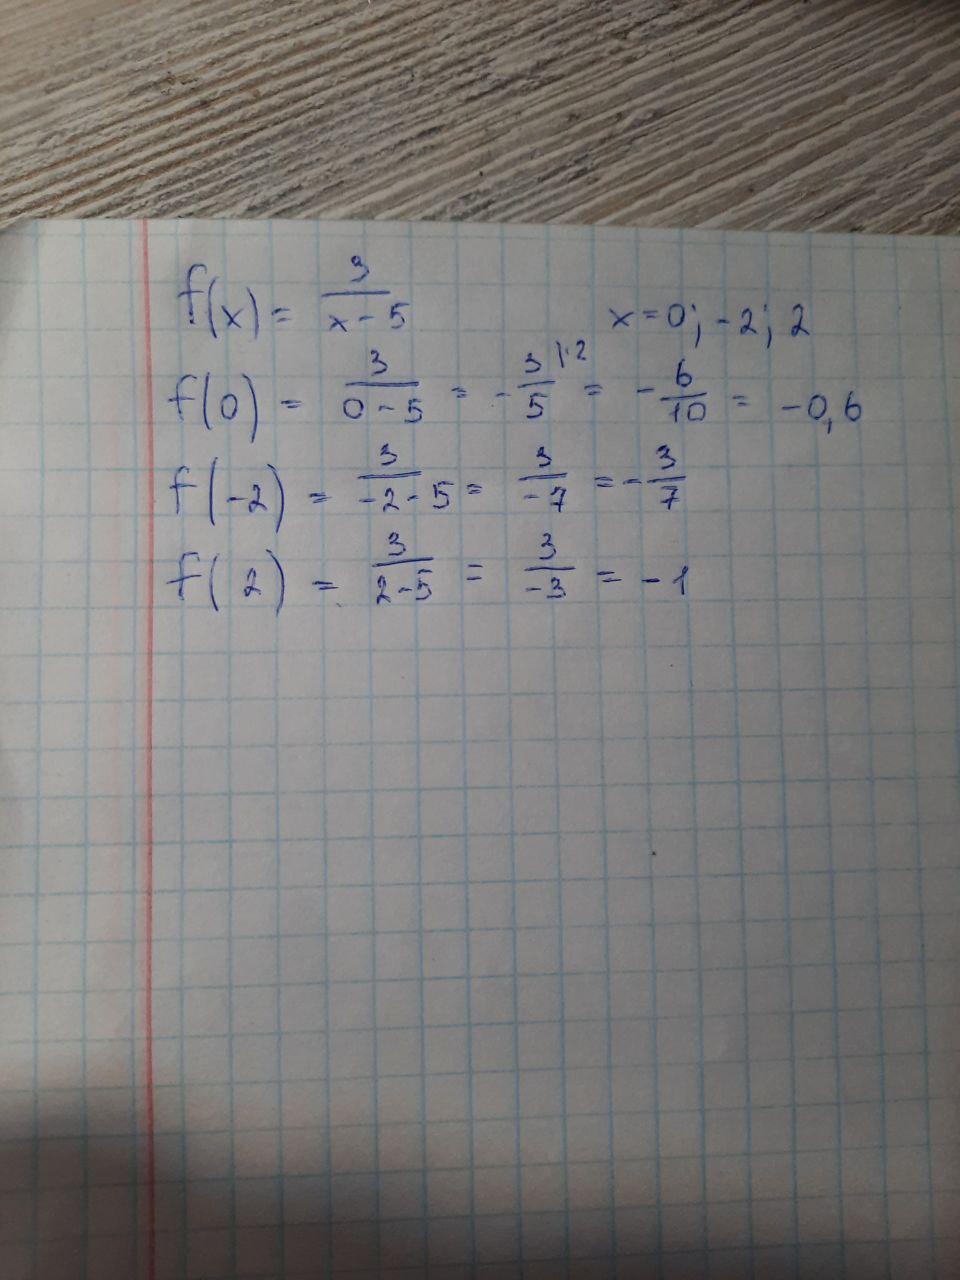 f(x) = 3/(x - 5) x = 0; -2; 2
f(0) = 3/(0 - 5) = - 3/5 |·2 = - 6/10 = -0,6
f(-2) = 3/(-2 - 5) = 3/(-7) = - 3/7
f(2) = 3/(2 - 5) = 3/(-3) = -1